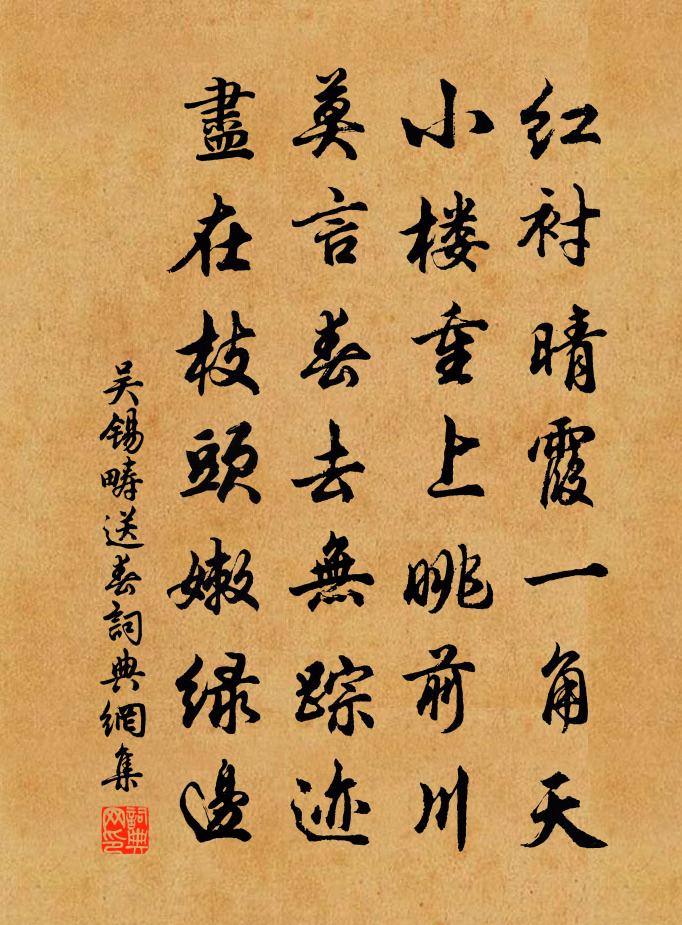 红衬晴霞一角天
小楼重上眺前川
莫言春去無踪迹
盡在枝頭嫩绿邊
吴锡畴送春詞典網集
詞典网印